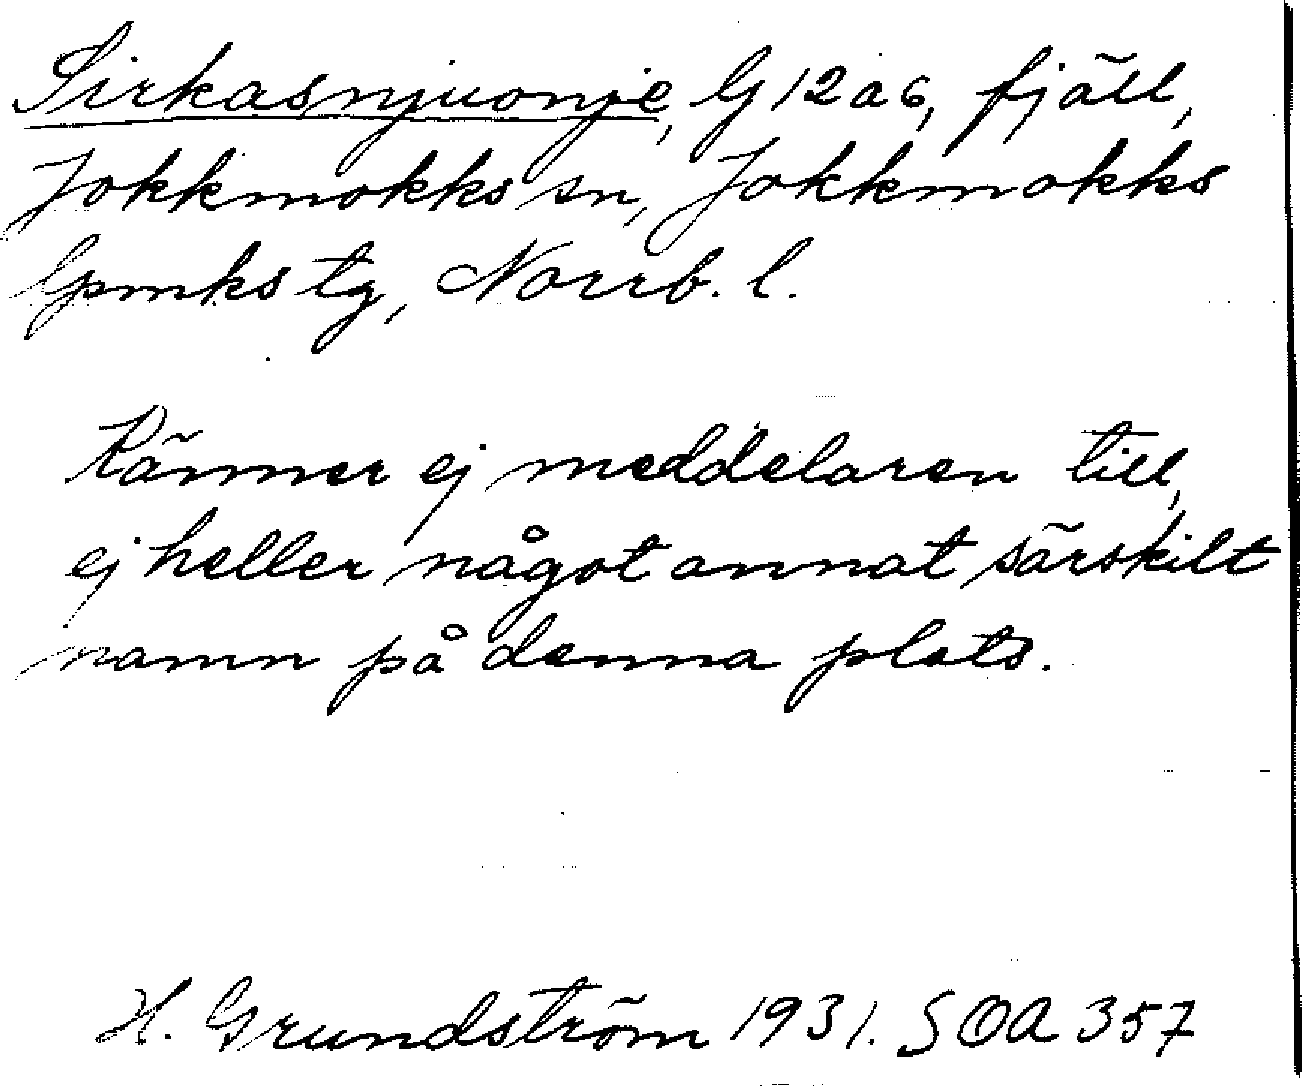 Sirkasnjuonje, G 12 a 6, fjäll,
Jokkmokks sn, Jokkmokks
lpmks tg, Norrb. l.
Känner ej meddelaren till,
ej heller något annat särskilt
namn på denna plats.
H. Grundström 1931. SOA 357